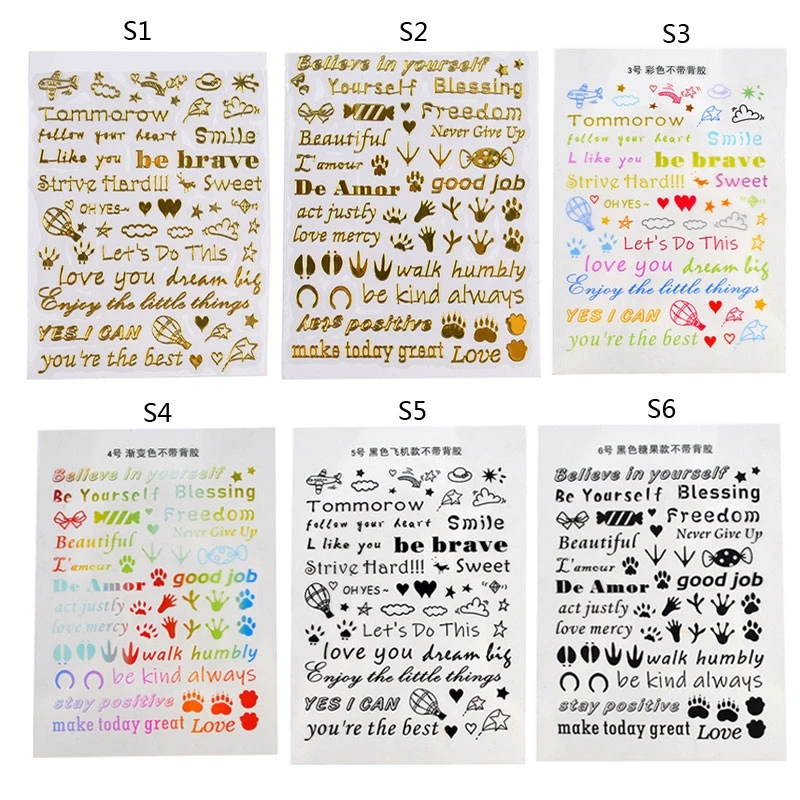 S1
Tommorow
follow your heart Smile
L like you be brave
Strive Hard!!! Sweet
OH YES~
Let's Do This
love you dream big
Enjoy the little things
YES I CAN
you're the best
S2
Believe in yourself
Yourself Blessing
Freedom
Beautiful Never Give Up
L'amour
De Amor good job
act justly
love mercy
walk humbly
be kind always
stay positive
make today great Love
S3
3号 彩色不带背胶
Tommorow
follow your heart Smile
L like you be brave
Strive Hard!!! Sweet
OH YES~
Let's Do This
love you dream big
Enjoy the little things
YES I CAN
you're the best
S4
4号 渐变色不带背胶
Believe in yourself
Be Yourself Blessing
Freedom
Never Give Up
Beautiful
L'amour
De Amor good job
act justly
love mercy
walk humbly
be kind always
stay positive
make today great Love
S5
5号 黑色飞机款不带背胶
Tommorow
follow your heart Smile
L like you be brave
Strive Hard!!! Sweet
OH YES~
Let's Do This
love you dream big
Enjoy the little things
YES I CAN
you're the best
S6
6号 黑色糖果款不带背胶
Believe in yourself
Be Yourself Blessing
Freedom
Never Give Up
Beautiful
L'amour
De Amor good job
act justly
love mercy
walk humbly
be kind always
stay positive
make today great Love